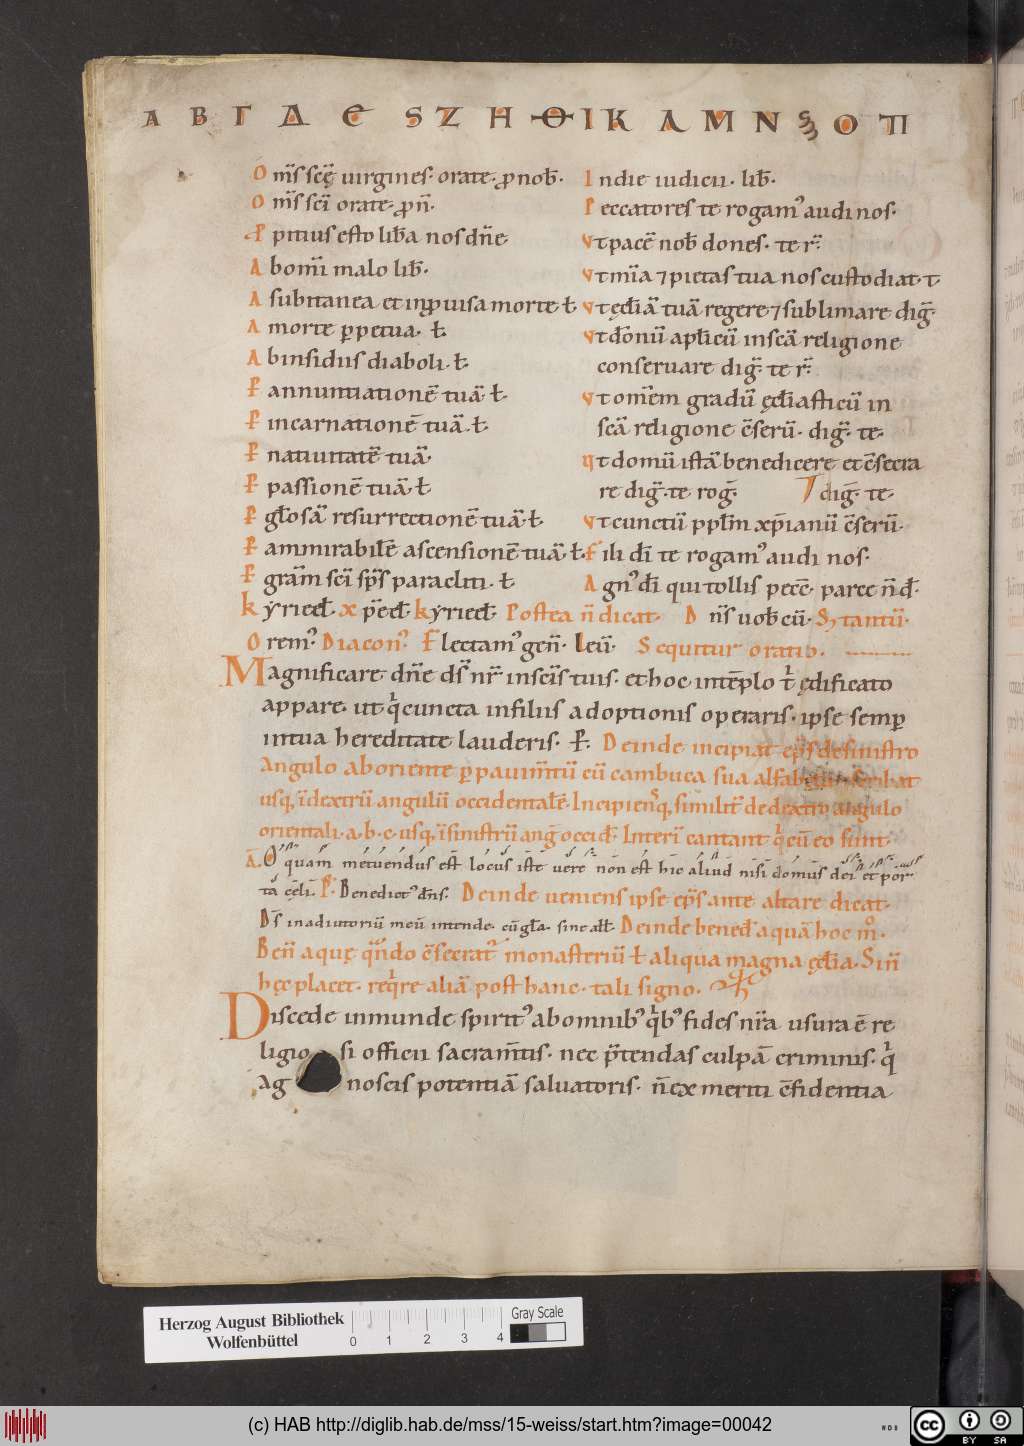 Α Β Γ Δ Ε Ϛ Ζ Η Θ Ι Κ Λ Μ Ν Ξ Ο Π
Om̅s scę̅ uirgines· orate· ꝓ nob̅·
Om̅s sc̅i orate· ꝓ n̅·
Ꝓpitius esto lib̅a nos dn̅e
Ab om̅i malo lib̅·
A subitanea et inꝓuisa morte ł
A morte ꝑpetua· ł
Ab insidiis diaboli· ł·
P annuntiatione̅ tua̅ ł·
P incarnatione̅ tua̅· ł·
P natiuitate̅ tua̅
P passione̅ tua̅· ł
P gl̅osa̅ resurrectione̅ tua̅· ł
P ammirabile̅ ascensione̅ tua̅· ł·
P gra̅m sc̅i sp̅s paracliti· ł
In die iudicii· lib̅·
Peccatores te rogam᾽ audi nos·
Vt pace̅ nob̅ dones· te r̅·
Vt mi̅a ⁊ pietas tua nos custodiat· t
Vt ęccl̅ia̅ tua̅ regere ⁊ sublimare dig̅·
Vt do̅nu̅ apl̅icu̅ in sca̅ religione
conseruare dig̅· te r̅·
Vt om̅em gradu̅ ęccl̅iasticu̅ in
sca̅ religione c̅seru̅· dig̅· te·
Vt domu̅ ista̅ benedicere et c̅secra
re dig̅· te rog̅· dig̅· te·
Vt cunctu̅ ppl̅m xp̅ianu̅ c̅seru̅·
Fili di̅ te rogam᾽ audi nos·
Agn᾽ di̅ qui tollis pecc̅· parce n̅ d̅·
Kyrieel̅· xp̅eel̅· kyrieel̅· Postea n̅ dicat· Dn̅s uob̅cu̅· S; tantu̅·
Orem᾽· Diacon᾽· Flectam᾽ gen̅· Leu̅· Sequitur oratio·
Magnificare dn̅e ds̅ nr̅ in scis̅ tuis· et hoc in te̅plo t̍ ędificato
appare· ut q̍ cuncta in filiis adoptionis operaris· ipse semꝑ
in tua hereditate lauderis· P̶· Deinde incipiat ep̅s de sinistro
angulo ab oriente ꝑ pauim̅tu̅ cu̅ cambuca sua alfabetu̅ scribat
usq; i̅ dextru̅ angulu̅ occidentale̅· Incipiens̅q; similit̅ de dextro angulo
orientali· a· b· c· usq; i̅ sinistru̅ ang̅ occid̅· Interi̅ cantant q̍ cu̅ eo sunt·
A̅· O quam metuendus est locus iste uere non est hic aliud nisi domus dei et por
ta cęli· P̅· Benedict᾽ dn̅s· Deinde ueniens ipse ep̅s ante altare dicat·
Ds̅ in adiutoriu̅ meu̅ intende· cu̅ gl̅a· sine all̅· Deinde bened̅ aqua̅ hoc m̊·
Ben̅ aquę qn̅do c̅secrat᾽ monasteriu̅ ł aliqua magna ęccl̅ia· Si n̅
hęc placet· req̍re alia̅ post hanc· tali signo·
Discede inmunde spirit᾽ ab omnib᾽ q̍b᾽ fides nr̅a usura e̅ re
ligio si officii sacram̅tis· nec p̅tendas culpa̅ criminis· q̍
Ag noscis potentia̅ saluatoris· n̅ ex meriti c̅fidentia
Herzog August Bibliothek
Wolfenbüttel
0 1 2 3 4
Gray Scale
(c) HAB http://diglib.hab.de/mss/15-weiss/start.htm?image=00042
cc BY SA